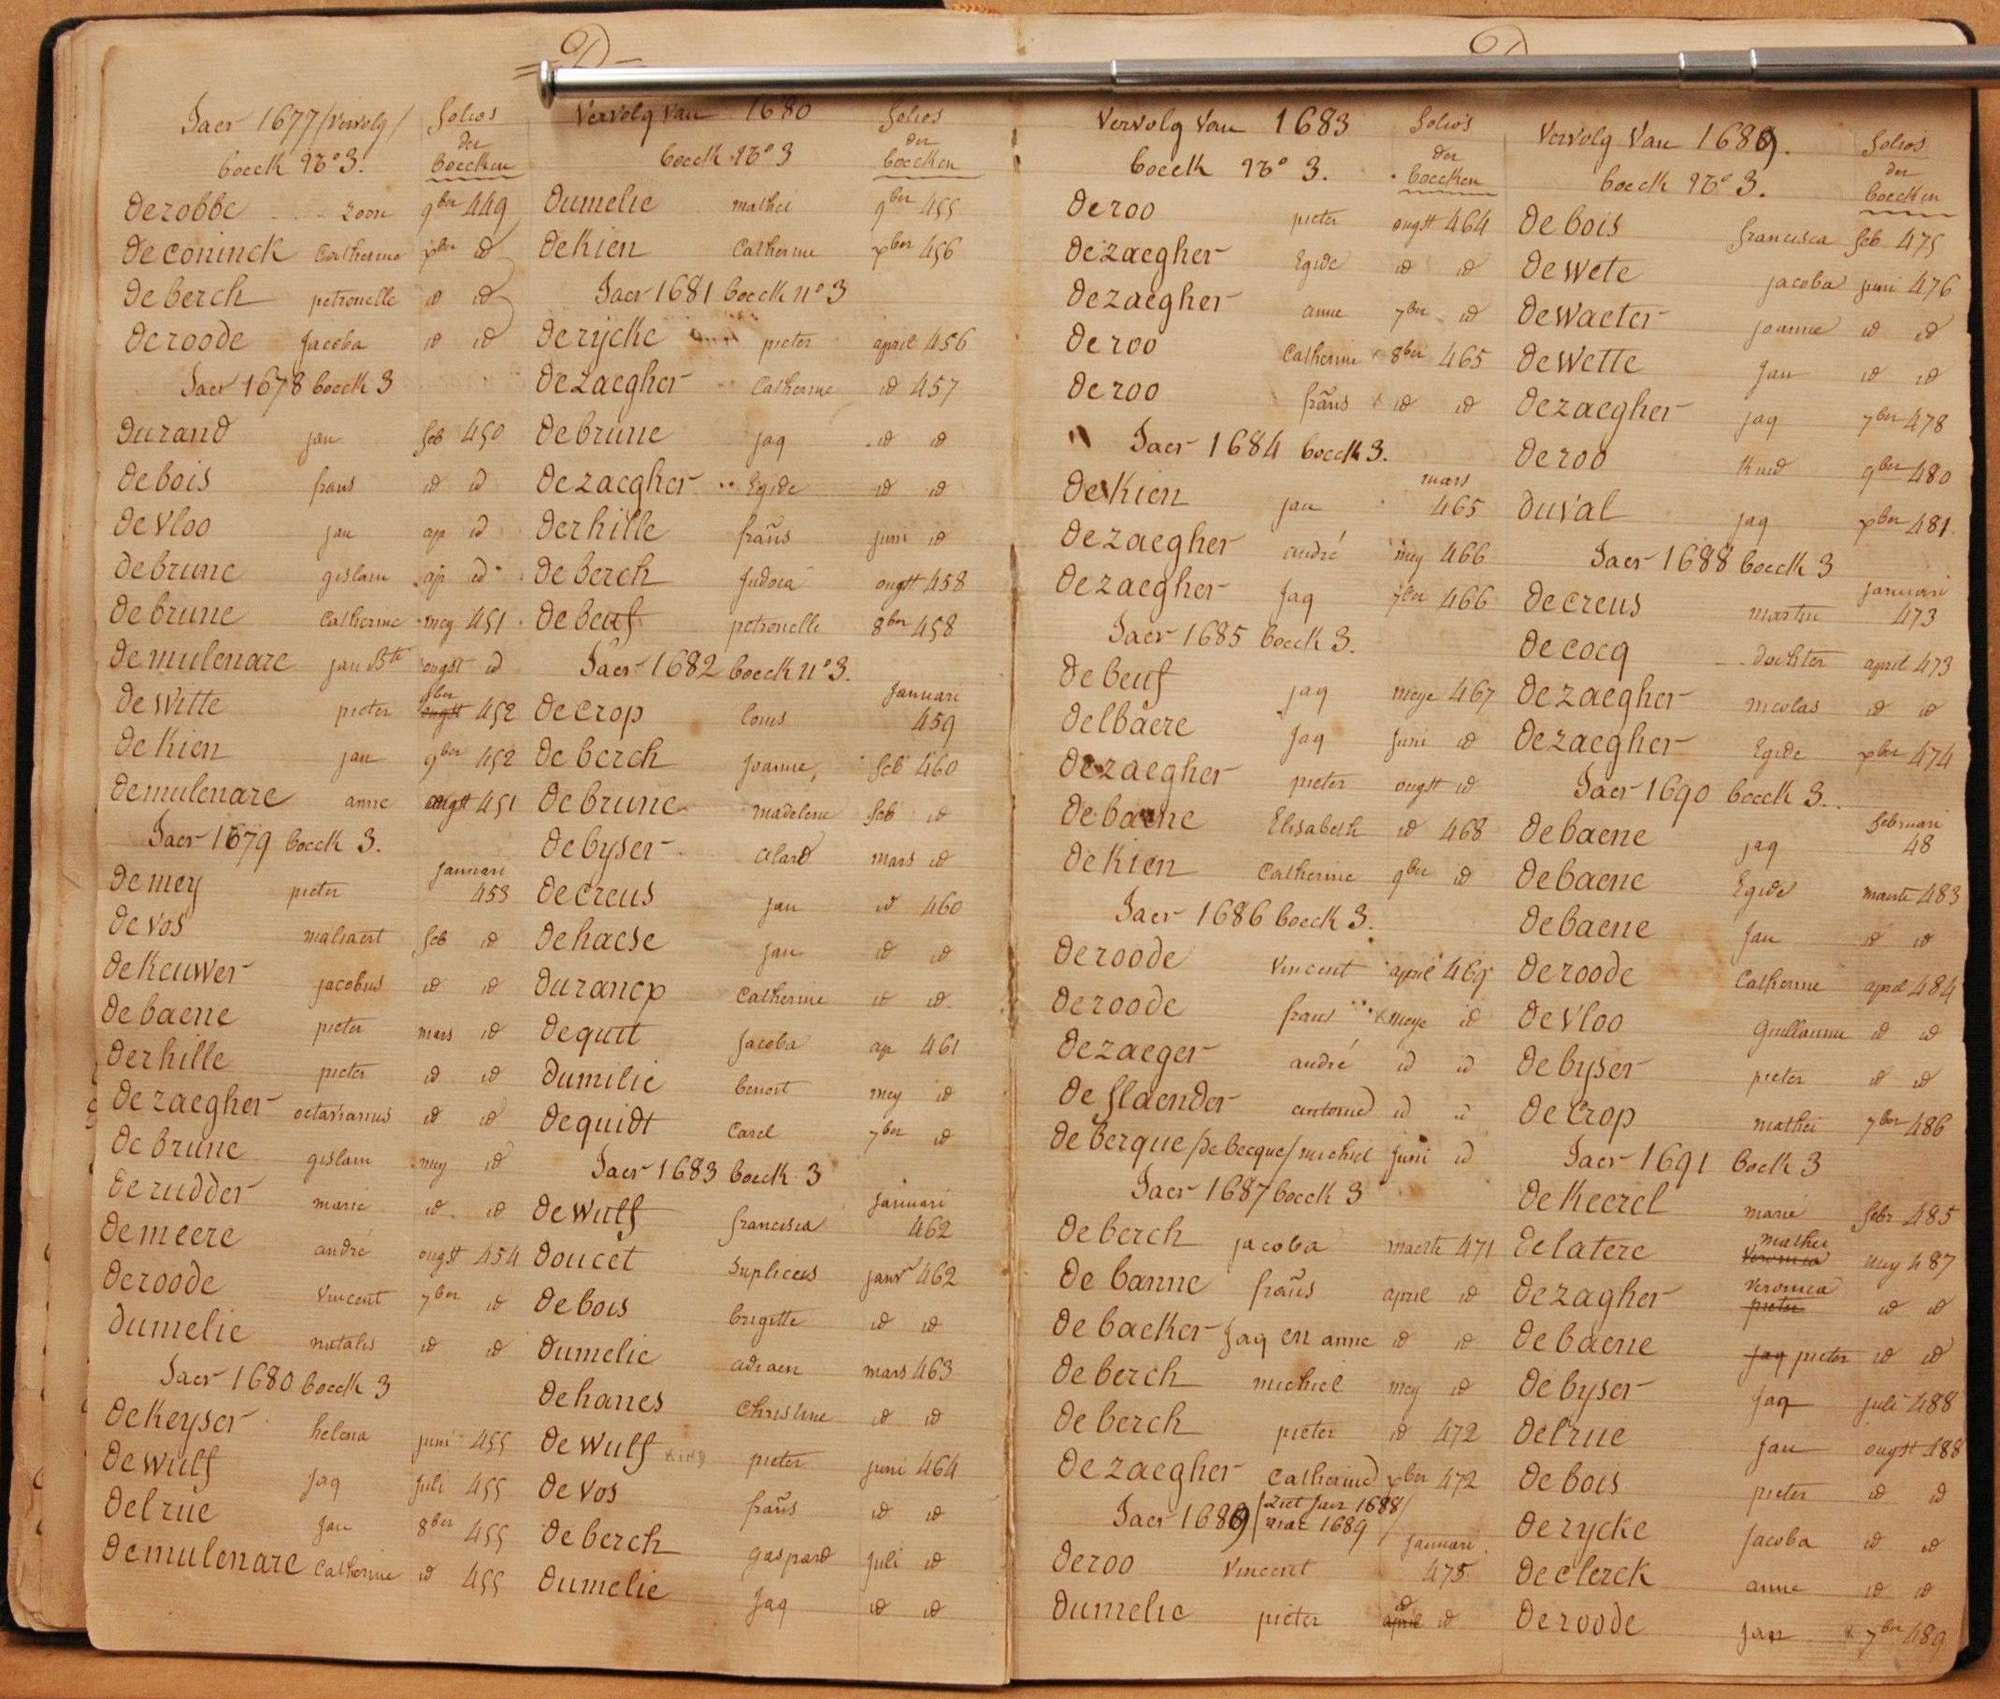 D
Jaer 1677 / vervolg /
folios
der
boecken
boeck N° 3.
De robbe zoon 9ber 449
De coninck Catherine xber id
De berch petronelle id id
De roode Jacoba id id
Jaer 1678 boeck 3
Durand jan feb 450
De bois frans id id
De vloo jan ap id
De brune gislain ap id
De brune Catherine mey 451
De mulenare jan Bte ougst id
De witte pieter 8ber ougst 452
De Kien jan 9ber 452
De mulenare anne ougst 451
Jaer 1679 boeck 3.
De mey pieter januari 453
De vos maliaert feb id
De Keuwer jacobus id id
De baene pieter mars id
Derhille pieter id id
De zaegher octavianus id id
De brune gislain mey id
De rudder marie id id
De meere andré ougst 454
De roode Vincent 7ber id
Dumelie natalis id id
Jaer 1680 boeck 3
De Keyser helena juni 455
De wulf Jaq Juli 455
Delrue Jan 8ber 455
De mulenare Catherine id 455
vervolg van 1680
folios
der
boecken
boeck N° 3
Dumelie mathei 9ber 455
De Kien Catherine xber 456
Jaer 1681 boeck n° 3
De rijcke pieter april 456
De zaegher Catherine id 457
De brune jaq id id
De zaegher Egide id id
Derhille frans juni id
De berch Judoca ougst 458
De beuf petronelle 8ber 458
Jaer 1682 boeck n° 3.
De crop louis januari 459
De berch Joanne, feb 460
De brune madelene feb id
De byser alard mars id
De creus jan id 460
De haese jan id id
Durancp Catherine id id
De quit Jacoba ap 461
Dumilie benoit mey id
De quidt Carel 7ber id
Jaer 1683 boeck 3
De wulf francisca januari 462
Doucet Supliceus janr 462
De bois brigitte id id
Dumelie adriaen mars 463
De hanes Christine id id
De wulf kind pieter juni 464
De vos frans id id
De berch gaspard juli id
Dumelie Jaq id id
D
Vervolg Van 1683
folios
der
boecken
boeck N° 3.
De roo pieter ougst 464
De zaegher Egide id id
De zaegher anne 7ber id
De roo Catherine 8ber 465
De roo frans id id
Jaer 1684 boeck 3.
De Kien jan mars 465
De zaegher andré mey 466
De zaegher Jaq 7ber 466
Jaer 1685 boeck 3.
De beuf jaq meye 467
Delbaere Jaq Juni id
De zaegher pieter ougst id
De baene Elisabeth id 468
De Kien Catherine 9ber id
Jaer 1686 boeck 3.
De roode Vincent april 469
De roode frans meye id
De zaeger andré id id
De flaender antoine id id
De berque / de becque / michiel Juni id
Jaer 1687 boeck 3
De berch jacoba maerte 471
De banne frans april id
De backer Jaq en anne id id
De berch michiel mey id
De berch pieter id 472
De zaegher Catherine xber 472
Jaer 1689 / ziet jaer 1688 /
naer 1689
De roo Vincent januari 475
Dumelie pieter id april id
Vervolg Van 1689.
folios
der
boecken
boeck N° 3.
De bois francisca feb 475
De wete jacoba juni 476
De waeter joanne id id
De wette Jan id id
De zaegher jaq 7ber 478
De roo Kind 9ber 480
Duval jaq xber 481
Jaer 1688 boeck 3
De creus martin januari 473
De cocq dochter april 473
De zaegher nicolas id id
De zaegher Egide xber 474
Jaer 1690 boeck 3.
De baene jaq februari 48
De baene Egide maerte 483
De baene Jan id id
De roode Catherine april 484
De vloo Guillaume id id
De byser pieter id id
De crop mathei 7ber 486
Jaer 1691 boeck 3
De Keerel marie febr 485
De latere mathei veronica mey 487
De zagher veronica pieter id id
De baene jaq pieter id id
De byser Jaq juli 488
Delrue Jan ougst 488
De bois pieter id id
De rycke Jacoba id id
De clerck anne id id
De roode Jan 7ber 489